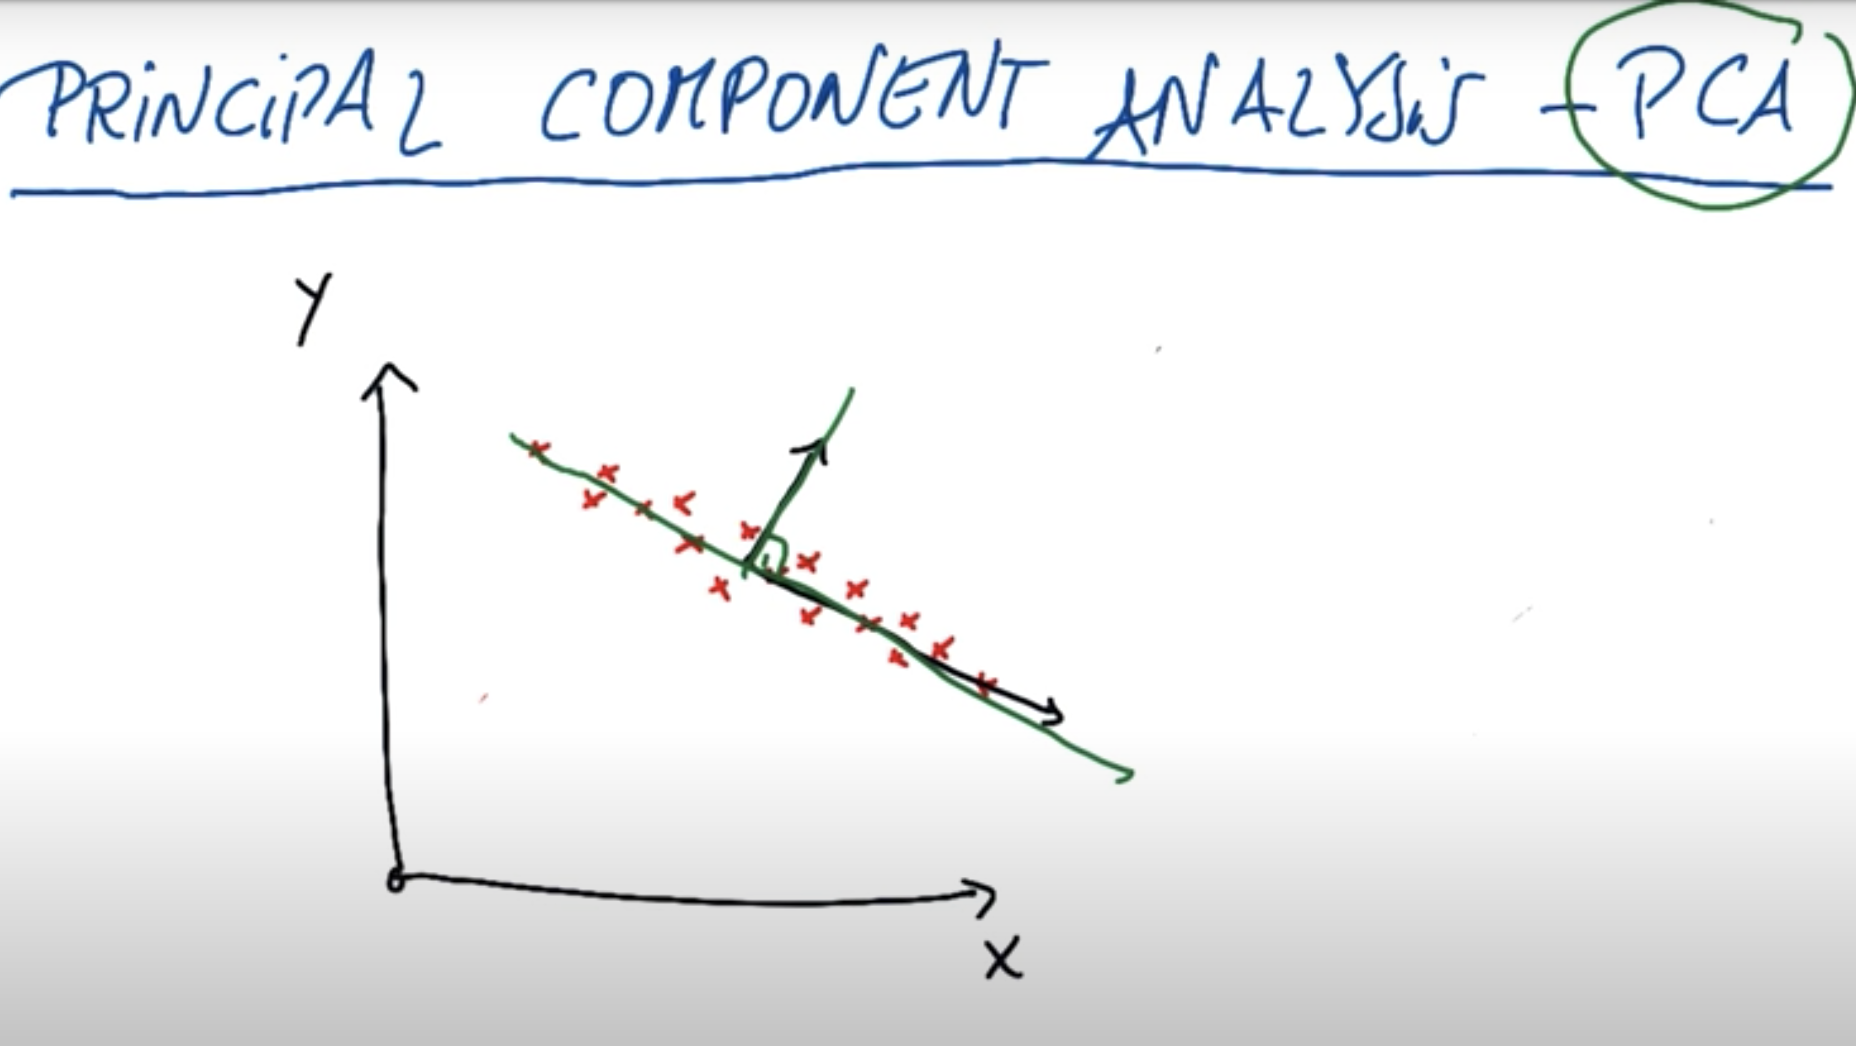 PRiNCiPAL COMPONENT ANALYSiS - PCA
Y
X